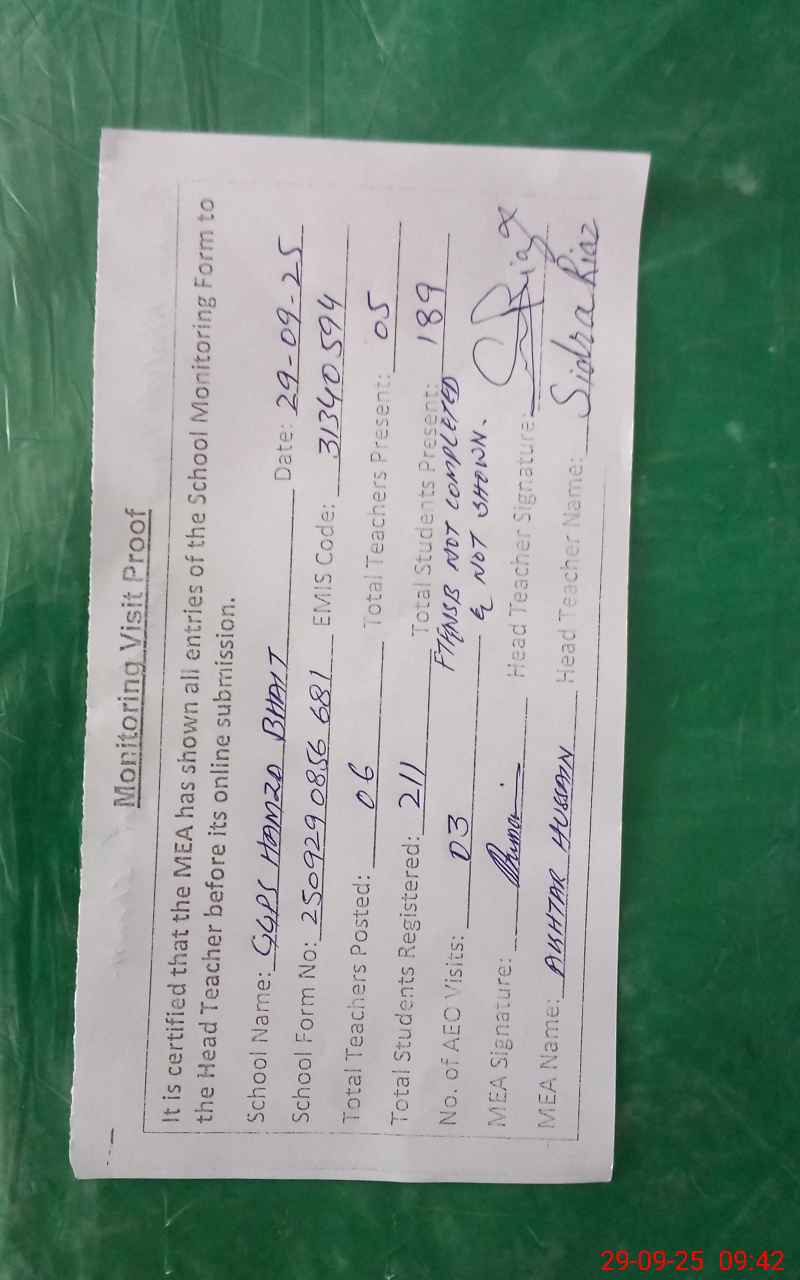 Monitoring Visit Proof
It is certified that the MEA has shown all entries of the School Monitoring Form to
the Head Teacher before its online submission.
School Name: GGPS HAMZO BHAIT Date: 29-09-25
School Form No: 250929 0856 681 EMIS Code: 31340594
Total Teachers Posted: 06 Total Teachers Present: 05
Total Students Registered: 211 Total Students Present: 189
No. of AEO Visits: 03 FTF/NSB NOT COMPLETED
& NOT SHOWN.
MEA Signature: Head Teacher Signature: Riaz
MEA Name: AKHTAR HUSSAIN Head Teacher Name: Sidra Riaz
29-09-25 09:42